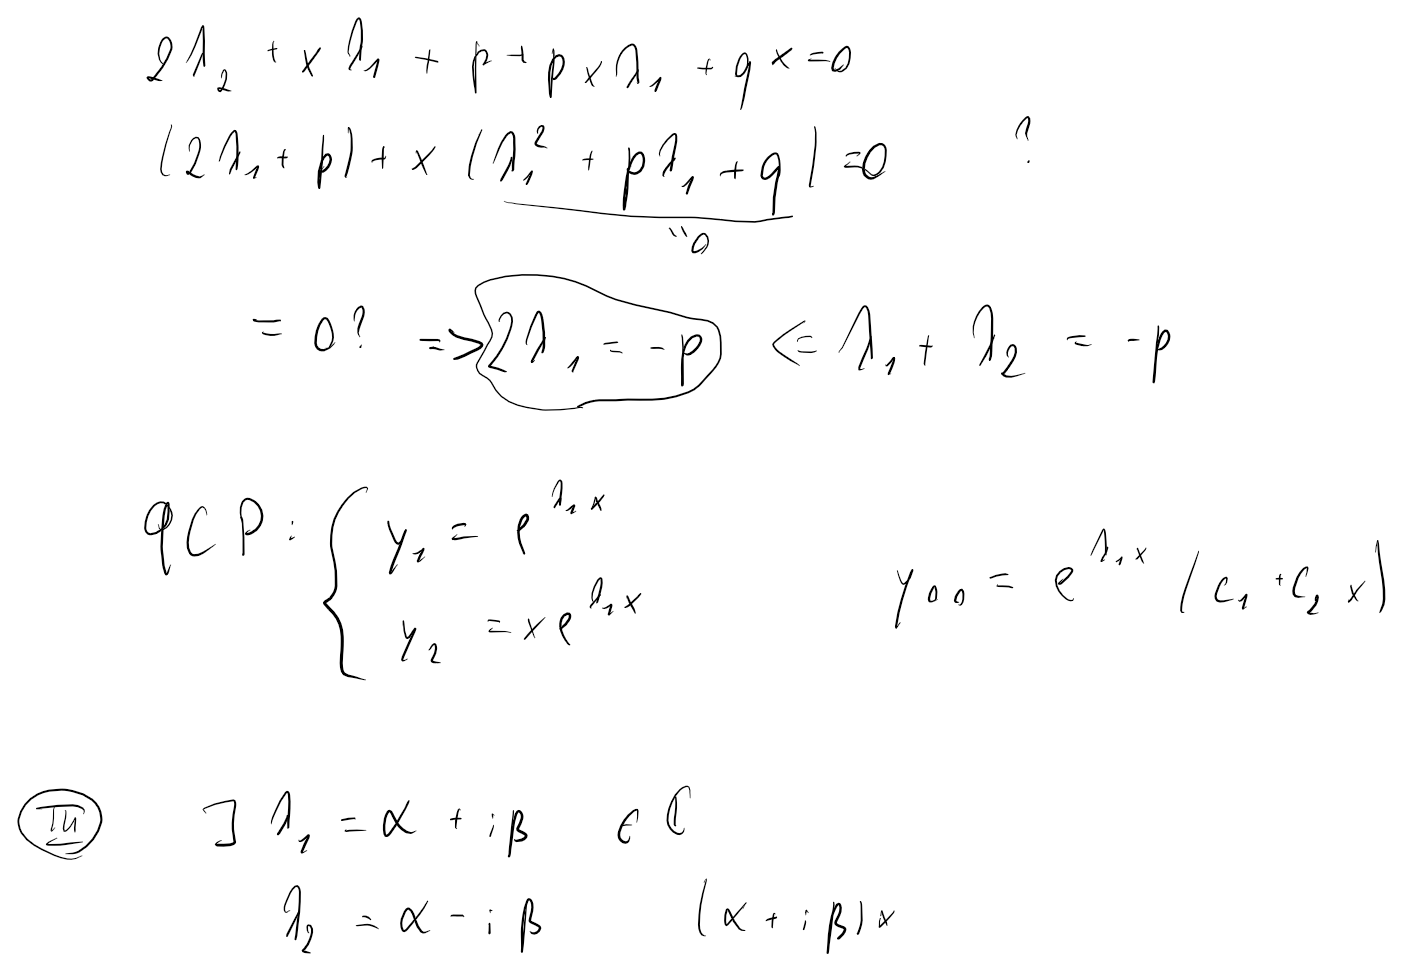 2λ₂ + xλ₁ + p + pxλ₁ + qx = 0
(2λ₁ + p) + x(λ₁² + pλ₁ + q) = 0 ?
"0
= 0? => 2λ₁ = -p <= λ₁ + λ₂ = -p
ФСР: { y₁ = e^{λ₁x}
y₂ = xe^{λ₁x}
y₀₀ = e^{λ₁x} (C₁ + C₂x)
] λ₁ = α + iβ ∈ ℂ
λ₂ = α - iβ (α + iβ)x